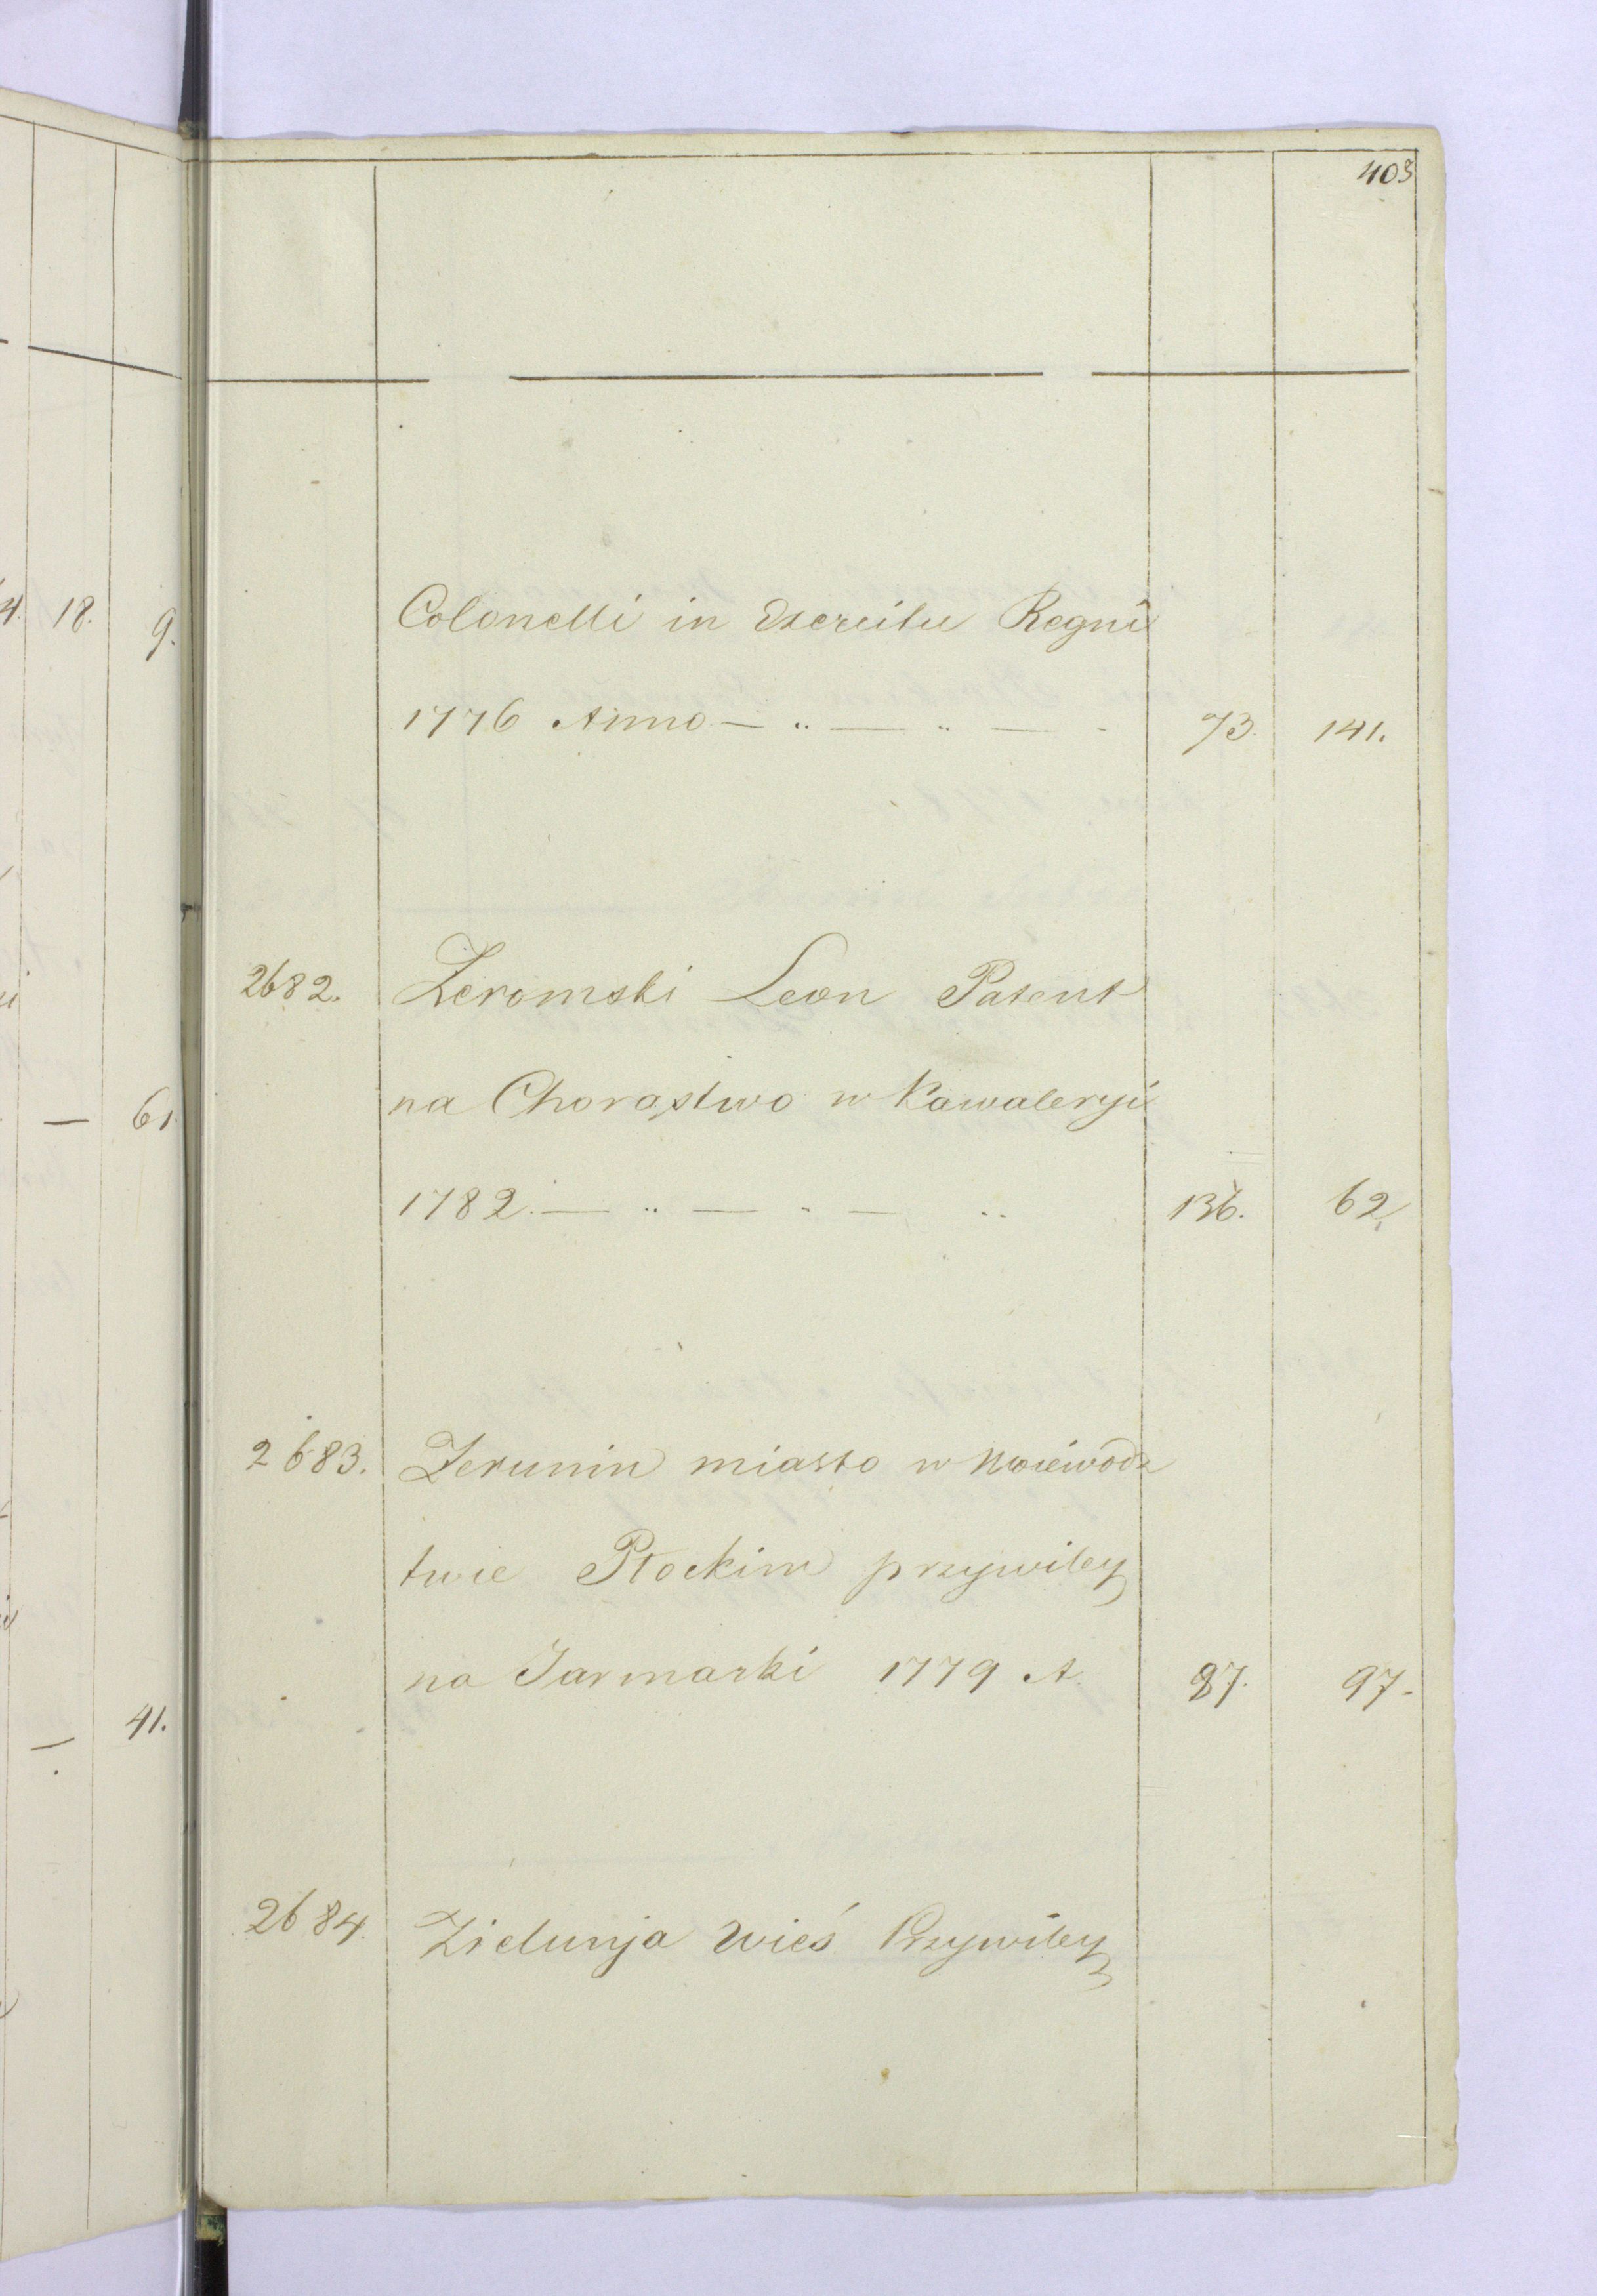 403
Colonelli in Exercitu Regni
1776 Anno — .. — .. — - 73. 141.
2682. Zeromski Leon Patent
na Chorąstwo w Kawaleryi
1782. — .. — .. — .. 136. 62.
2683. Zerunin miasto w Woiewódz
twie Płockim przywiley
na Jarmarki 1779 A. 87. 97.
2684. Zielunja wieś Przywiley
4. 18. 9.
— 61.
— 41.